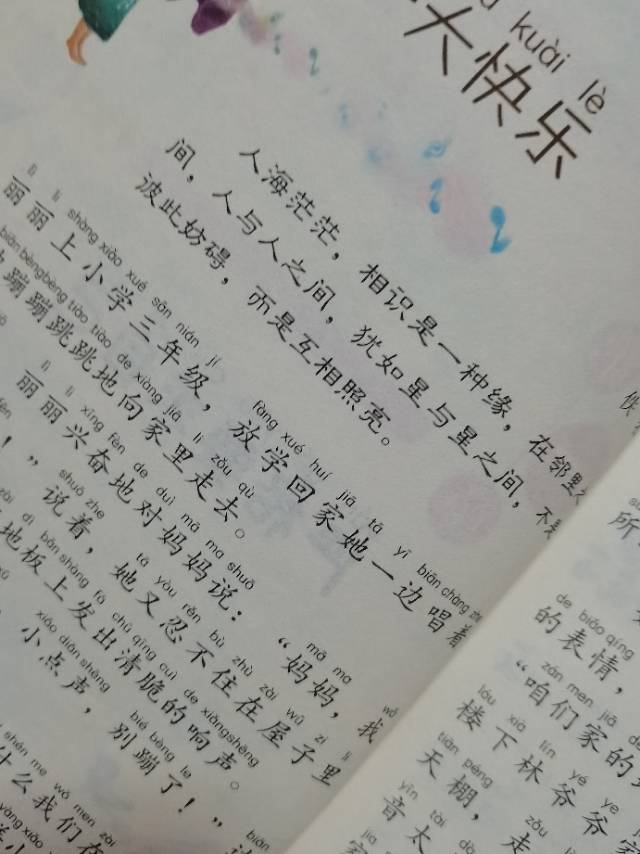 kuài lè
大快乐
人海茫茫，相识是一种缘，在邻里
间，人与人之间，犹如星与星之间，不是
彼此妨碍，而是互相照亮。
lì lì shàng xiǎo xué sān nián jí fàng xué huí jiā tā yī biān chàng
丽丽上小学三年级，放学回家她一边唱着
biān bèng bèng tiào tiào de xiàng jiā lǐ zǒu qù
蹦蹦跳跳地向家里走去。
lì lì xīng fèn de duì mā ma shuō mā ma wǒ
丽丽兴奋地对妈妈说：“妈妈，我
shuō zhe tā yòu rěn bù zhù zài wū zi lǐ
！”说着，她又忍不住在屋子里
zài dì bǎn shàng fā chū qīng cuì de xiǎng shēng
地板上发出清脆的响声。
xiǎo diǎn shēng bié bèng le
小点声，别蹦了！”
shén me wǒ men zài
什么我们在
所
de biǎo qíng
的表情，
zán men jiā de
“咱们家的
lóu xià lín yé ye
楼下林爷爷家
tiān péng zǒu
天棚，走
yīn tài
音太